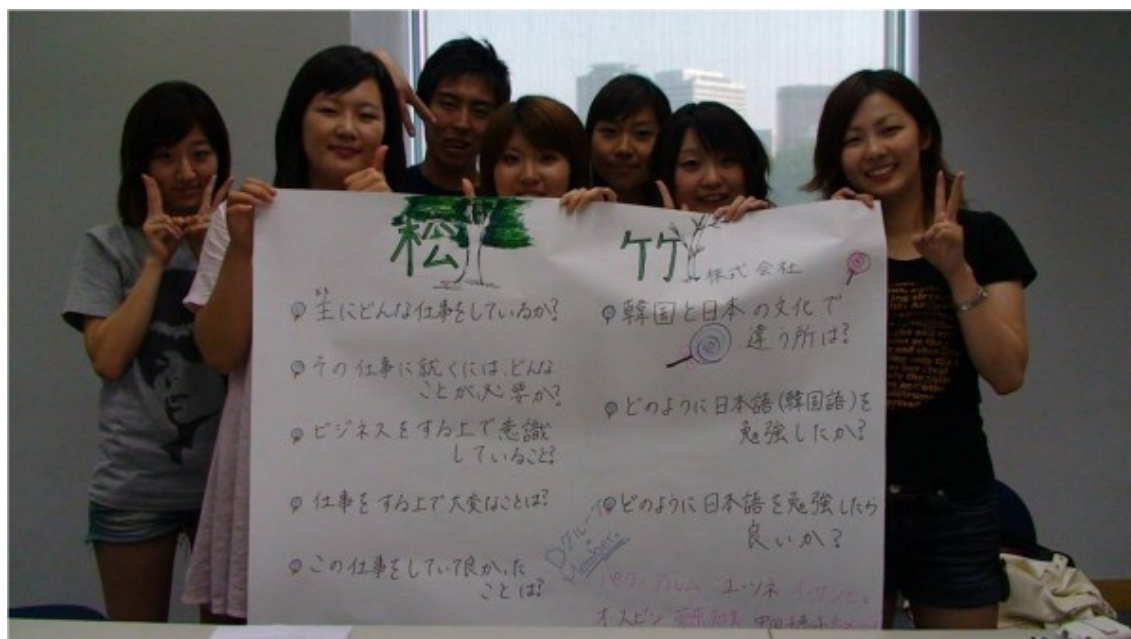 松
おも
主にどんな仕事をしているか?
その仕事に就くには、どんな
ことが必要か?
ビジネスをする上で意識
していること?
仕事をする上で大変なことは?
この仕事をしていて良かった
ことは?
竹 株式会社
韓国と日本の文化で
違う所は?
どのように日本語(韓国語)を
勉強したか?
どのように日本語を勉強したら
良いか?
Dグループ
member.
パク・アルム ユ・ソネ イ・サンヒ
オスビン